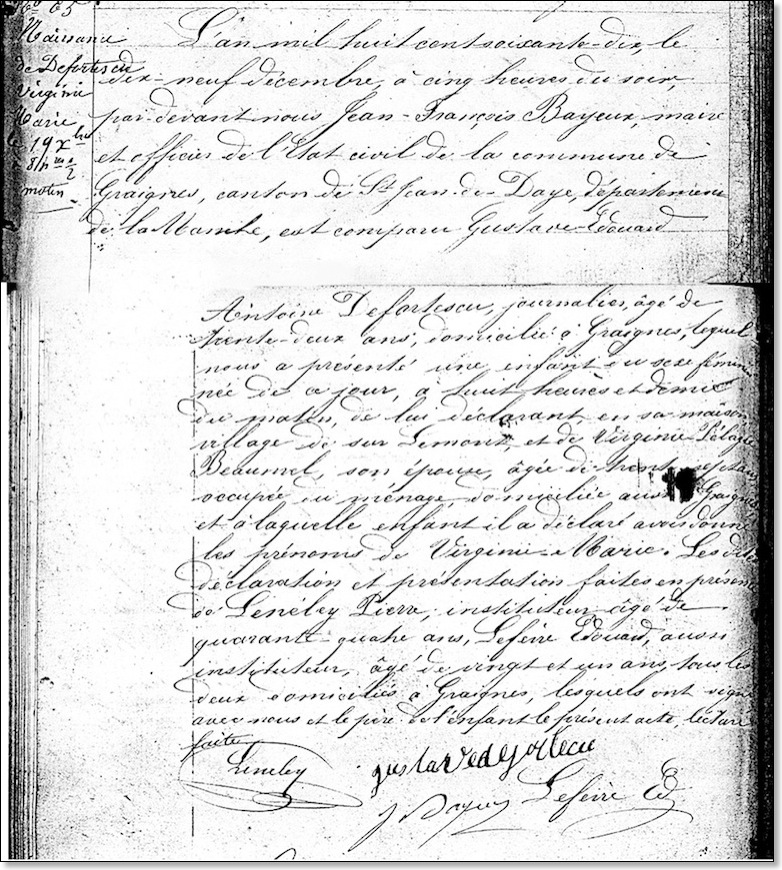 No 65
Naissance
de Defortescu
Virginie
Marie
le 19 Xbre
8h
matin
L'an mil huit cent soixante-dix, le
dix-neuf décembre, à cinq heures du soir,
par devant nous Jean-François Bayeux, maire
et officier de l'Etat civil de la commune de
Graignes, canton de St Jean-de-Daye, département
de la Manche, est comparu Gustave-Edouard
Antoine Defortescu, journalier, âgé de
trente-deux ans, domicilié à Graignes, lequel
nous a présenté une enfant du sexe féminin
née de ce jour, à huit heures et demie
du matin, de lui déclarant, en sa maison
village de sur Lemont, et de Virginie-Pélagie
Beaumel, son épouse, âgée de trente-sept ans
occupée du ménage domiciliée aussi Graignes
et à laquelle enfant il a déclaré avoir donné
les prénoms de Virginie-Marie. Lesdites
déclaration et présentation faites en présence
de Lenéley Pierre, instituteur âgé de
quarante-quatre ans, Lefèvre Edouard, aussi
instituteur, âgé de vingt et un ans, tous les
deux domiciliés à Graignes, lesquels ont signé
avec nous et le père de l'enfant le présent acte, lecture
faite.
Leneley
J Bayeux Lefèvre Ed